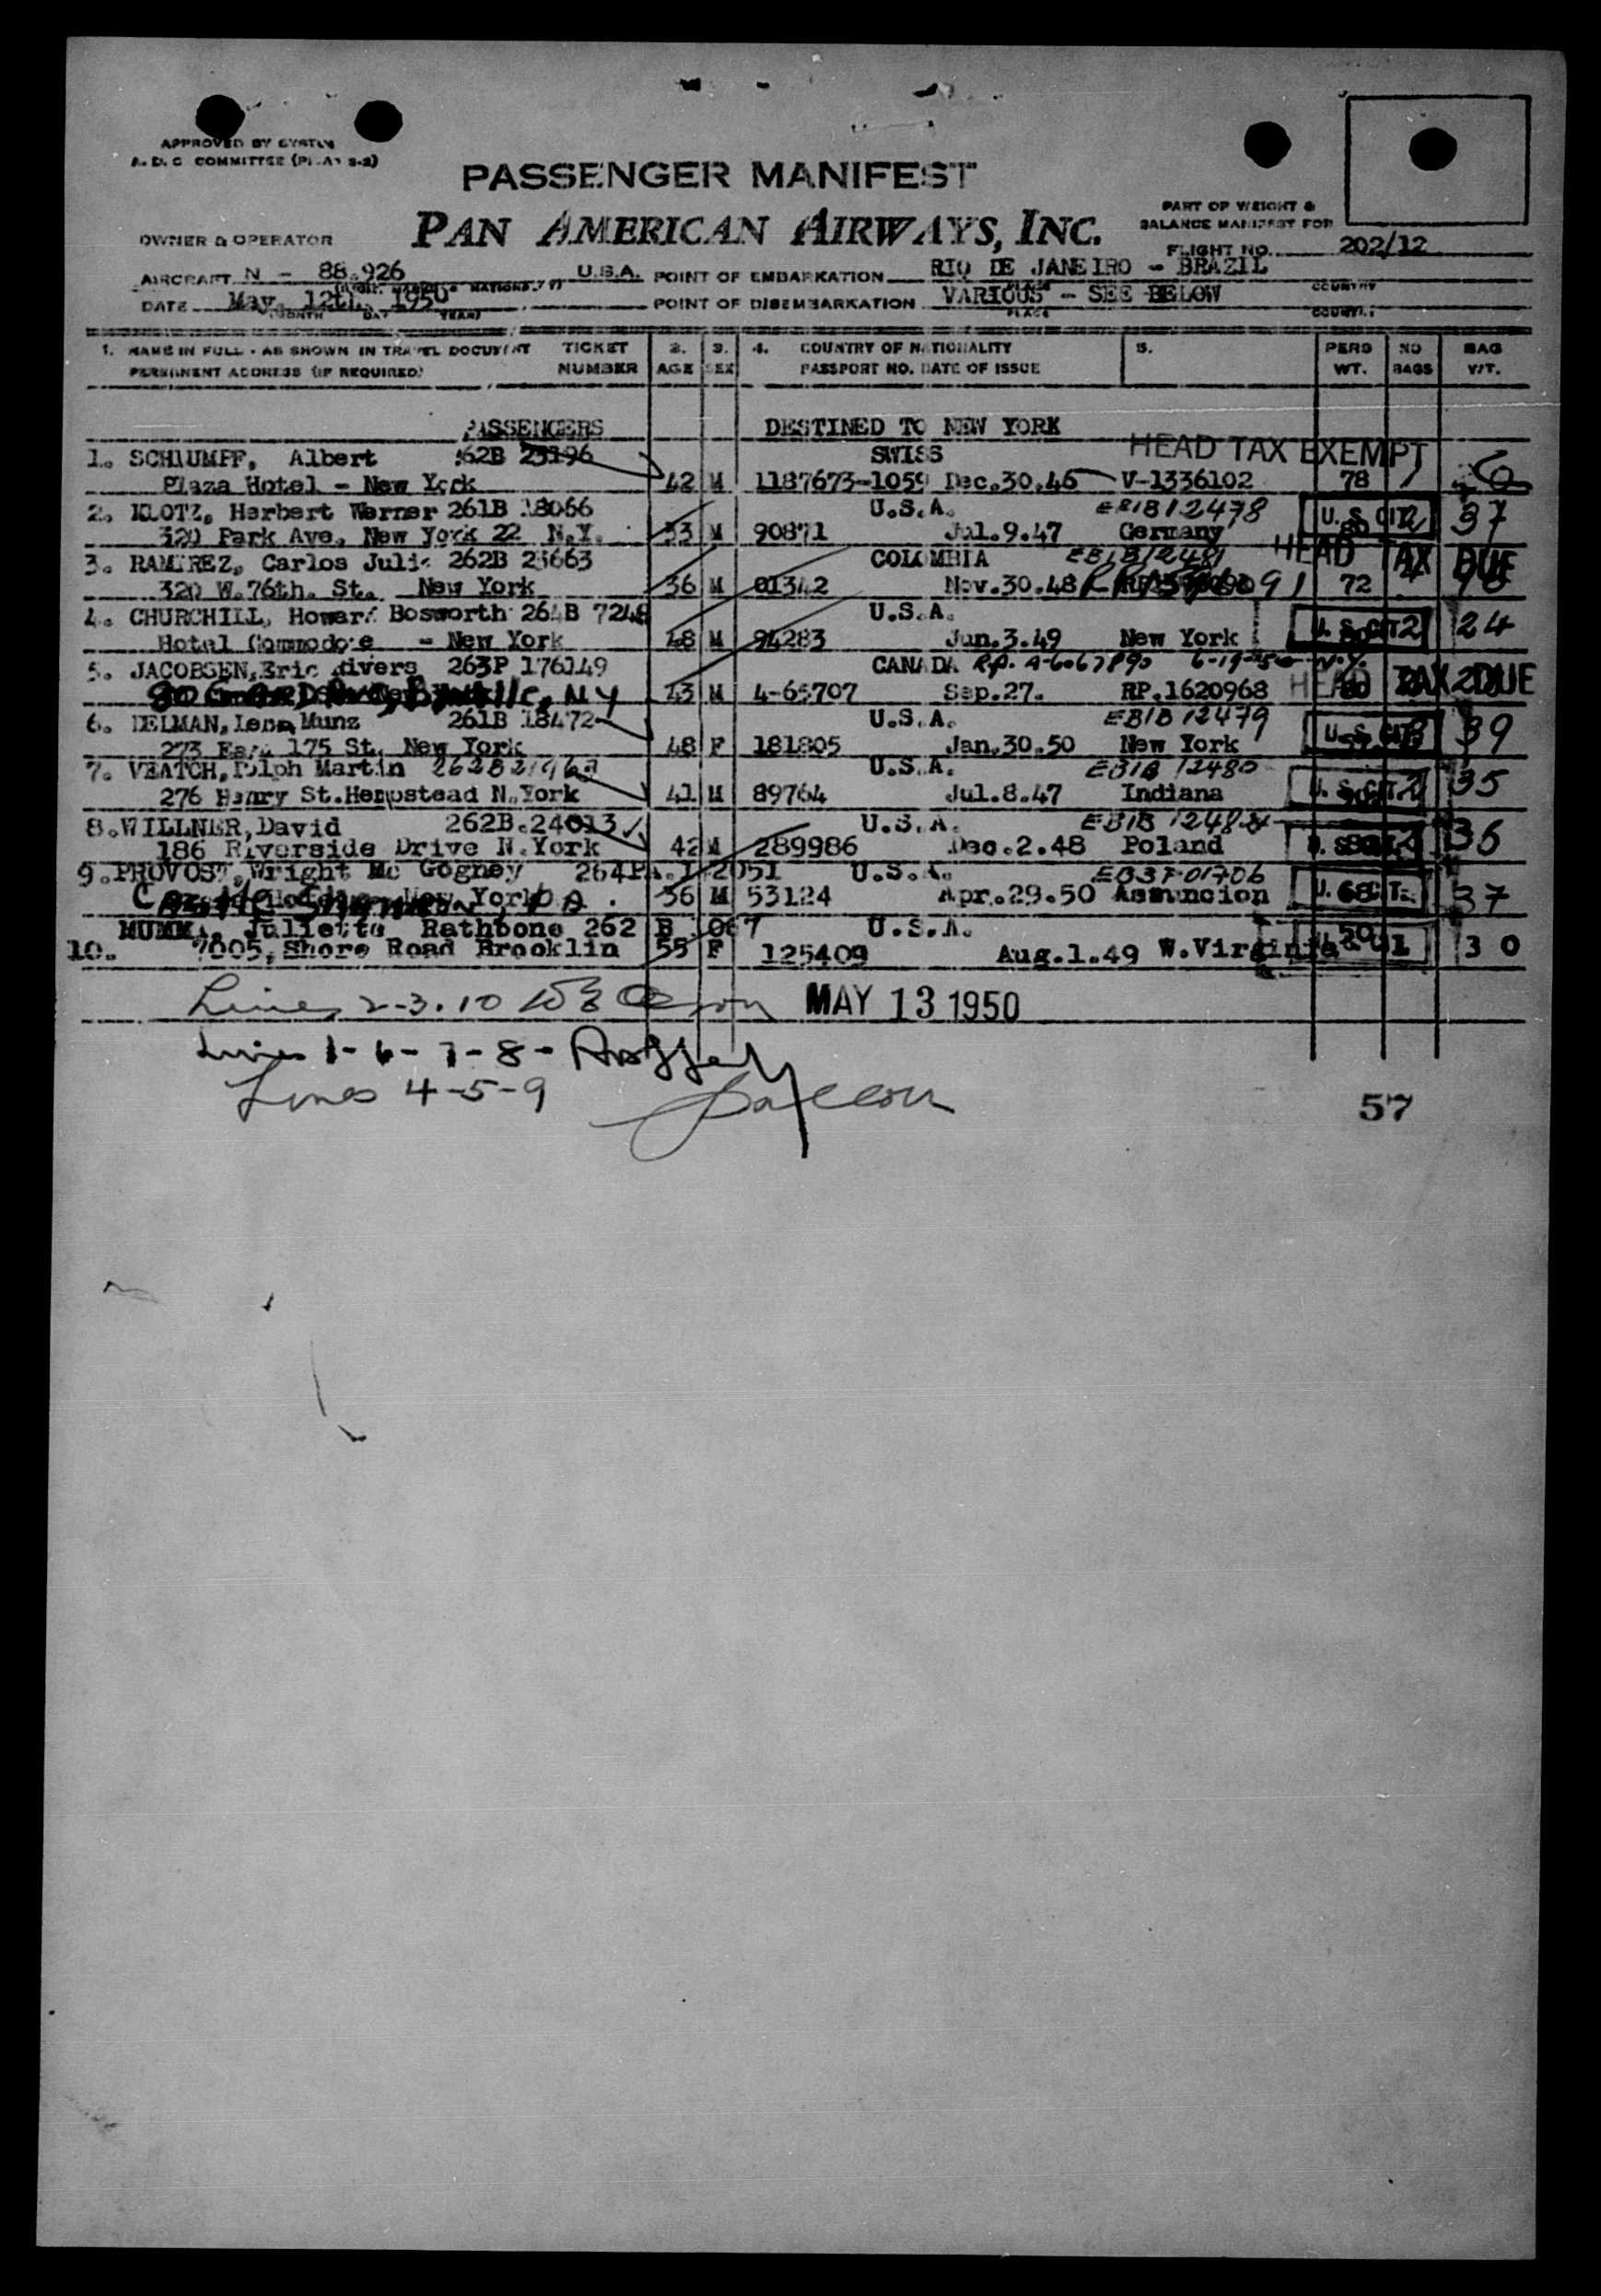 APPROVED BY SYSTEM
A. D. C COMMITTEE (PLAN S-2)
PASSENGER MANIFEST
PART OF WEIGHT &
BALANCE MANIFEST FOR
OWNER & OPERATOR PAN AMERICAN AIRWAYS, INC.
FLIGHT NO. 202/12
AIRCRAFT N - 88.926 U.S.A. POINT OF EMBARKATION RIO DE JANEIRO - BRAZIL
COUNTRY
DATE May. 12th. 1950 POINT OF DISEMBARKATION VARIOUS - SEE BELOW
MONTH DAY YEAR PLACE COUNTRY
1. NAME IN FULL - AS SHOWN IN TRAVEL DOCUMENT TICKET 2. 3. 4. COUNTRY OF NATIONALITY 5. PERS NO BAG
PERMANENT ADDRESS (IF REQUIRED) NUMBER AGE SEX PASSPORT NO. DATE OF ISSUE WT. BAGS WT.
PASSENGERS DESTINED TO NEW YORK
HEAD TAX EXEMPT
1. SCHAUMPF, Albert 262B 23196 SWISS
Plaza Hotel - New York 42 M 1187673-1059 Dec.30.46 V-1336102 78 1
2. KLOTZ, Herbert Werner 261B 18066 U.S.A. EB1B12478 U. S. CIT 2 37
320 Park Ave. New York 22 N.Y. 33 M 90871 Jul.9.47 Germany
3. RAMIREZ, Carlos Julio 262B 23663 COLOMBIA EB1B12481 HEAD TAX DUE
320 W.76th. St. New York 36 M 01342 Nov.30.48 72
4. CHURCHILL, Howard Bosworth 264B 7248 U.S.A.
Hotel Commodore - New York 48 M 94283 Jun.3.49 New York U. S. CIT 2 24
5. JACOBSEN, Eric Rivers 263P 176149 CANADA R.P. A-6067890
N Y 43 M 4-65707 Sep.27. RP.1620968 HEAD TAX DUE
6. DELMAN, Lena Munz 261B 18472 U.S.A. EB1B 12479
273 East 175 St. New York 48 F 181805 Jan.30.50 New York U. S. CIT 39
7. VEATCH, Ralph Martin U.S.A. EB1B 12480
276 Henry St. Hempstead N.York 41 M 89764 Jul.8.47 Indiana U. S. CIT 2 35
8. WILLNER, David 262B.24013 U.S.A.
186 Riverside Drive N.York 42 M 289986 Dec.2.48 Poland 36
9. PROVOST, Wright Mc Gogney 264PA.I 2051 U.S.A. EB3F01706
36 M 53124 Apr.29.50 Assuncion U. S. CIT 37
MUMMA, Juliette Rathbone 262 B 1067 U.S.A.
10. 7005, Shore Road Brooklin 55 F 125409 Aug.1.49 W.Virginia 1 30
Lines 2-3.10 MAY 13 1950
Lines 1-6-7-8-
Lines 4-5-9
57